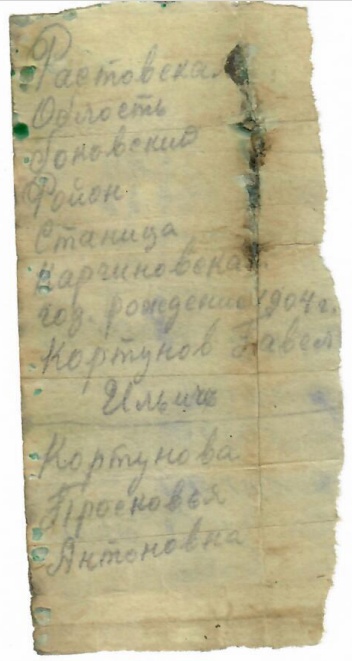 Растовская
Область
Боковский
Район
Станица
Каргиновская
год. рождение 1904 г.
Кортунов Павел
Ильичь
Кортунова
Просковья
Антоновна